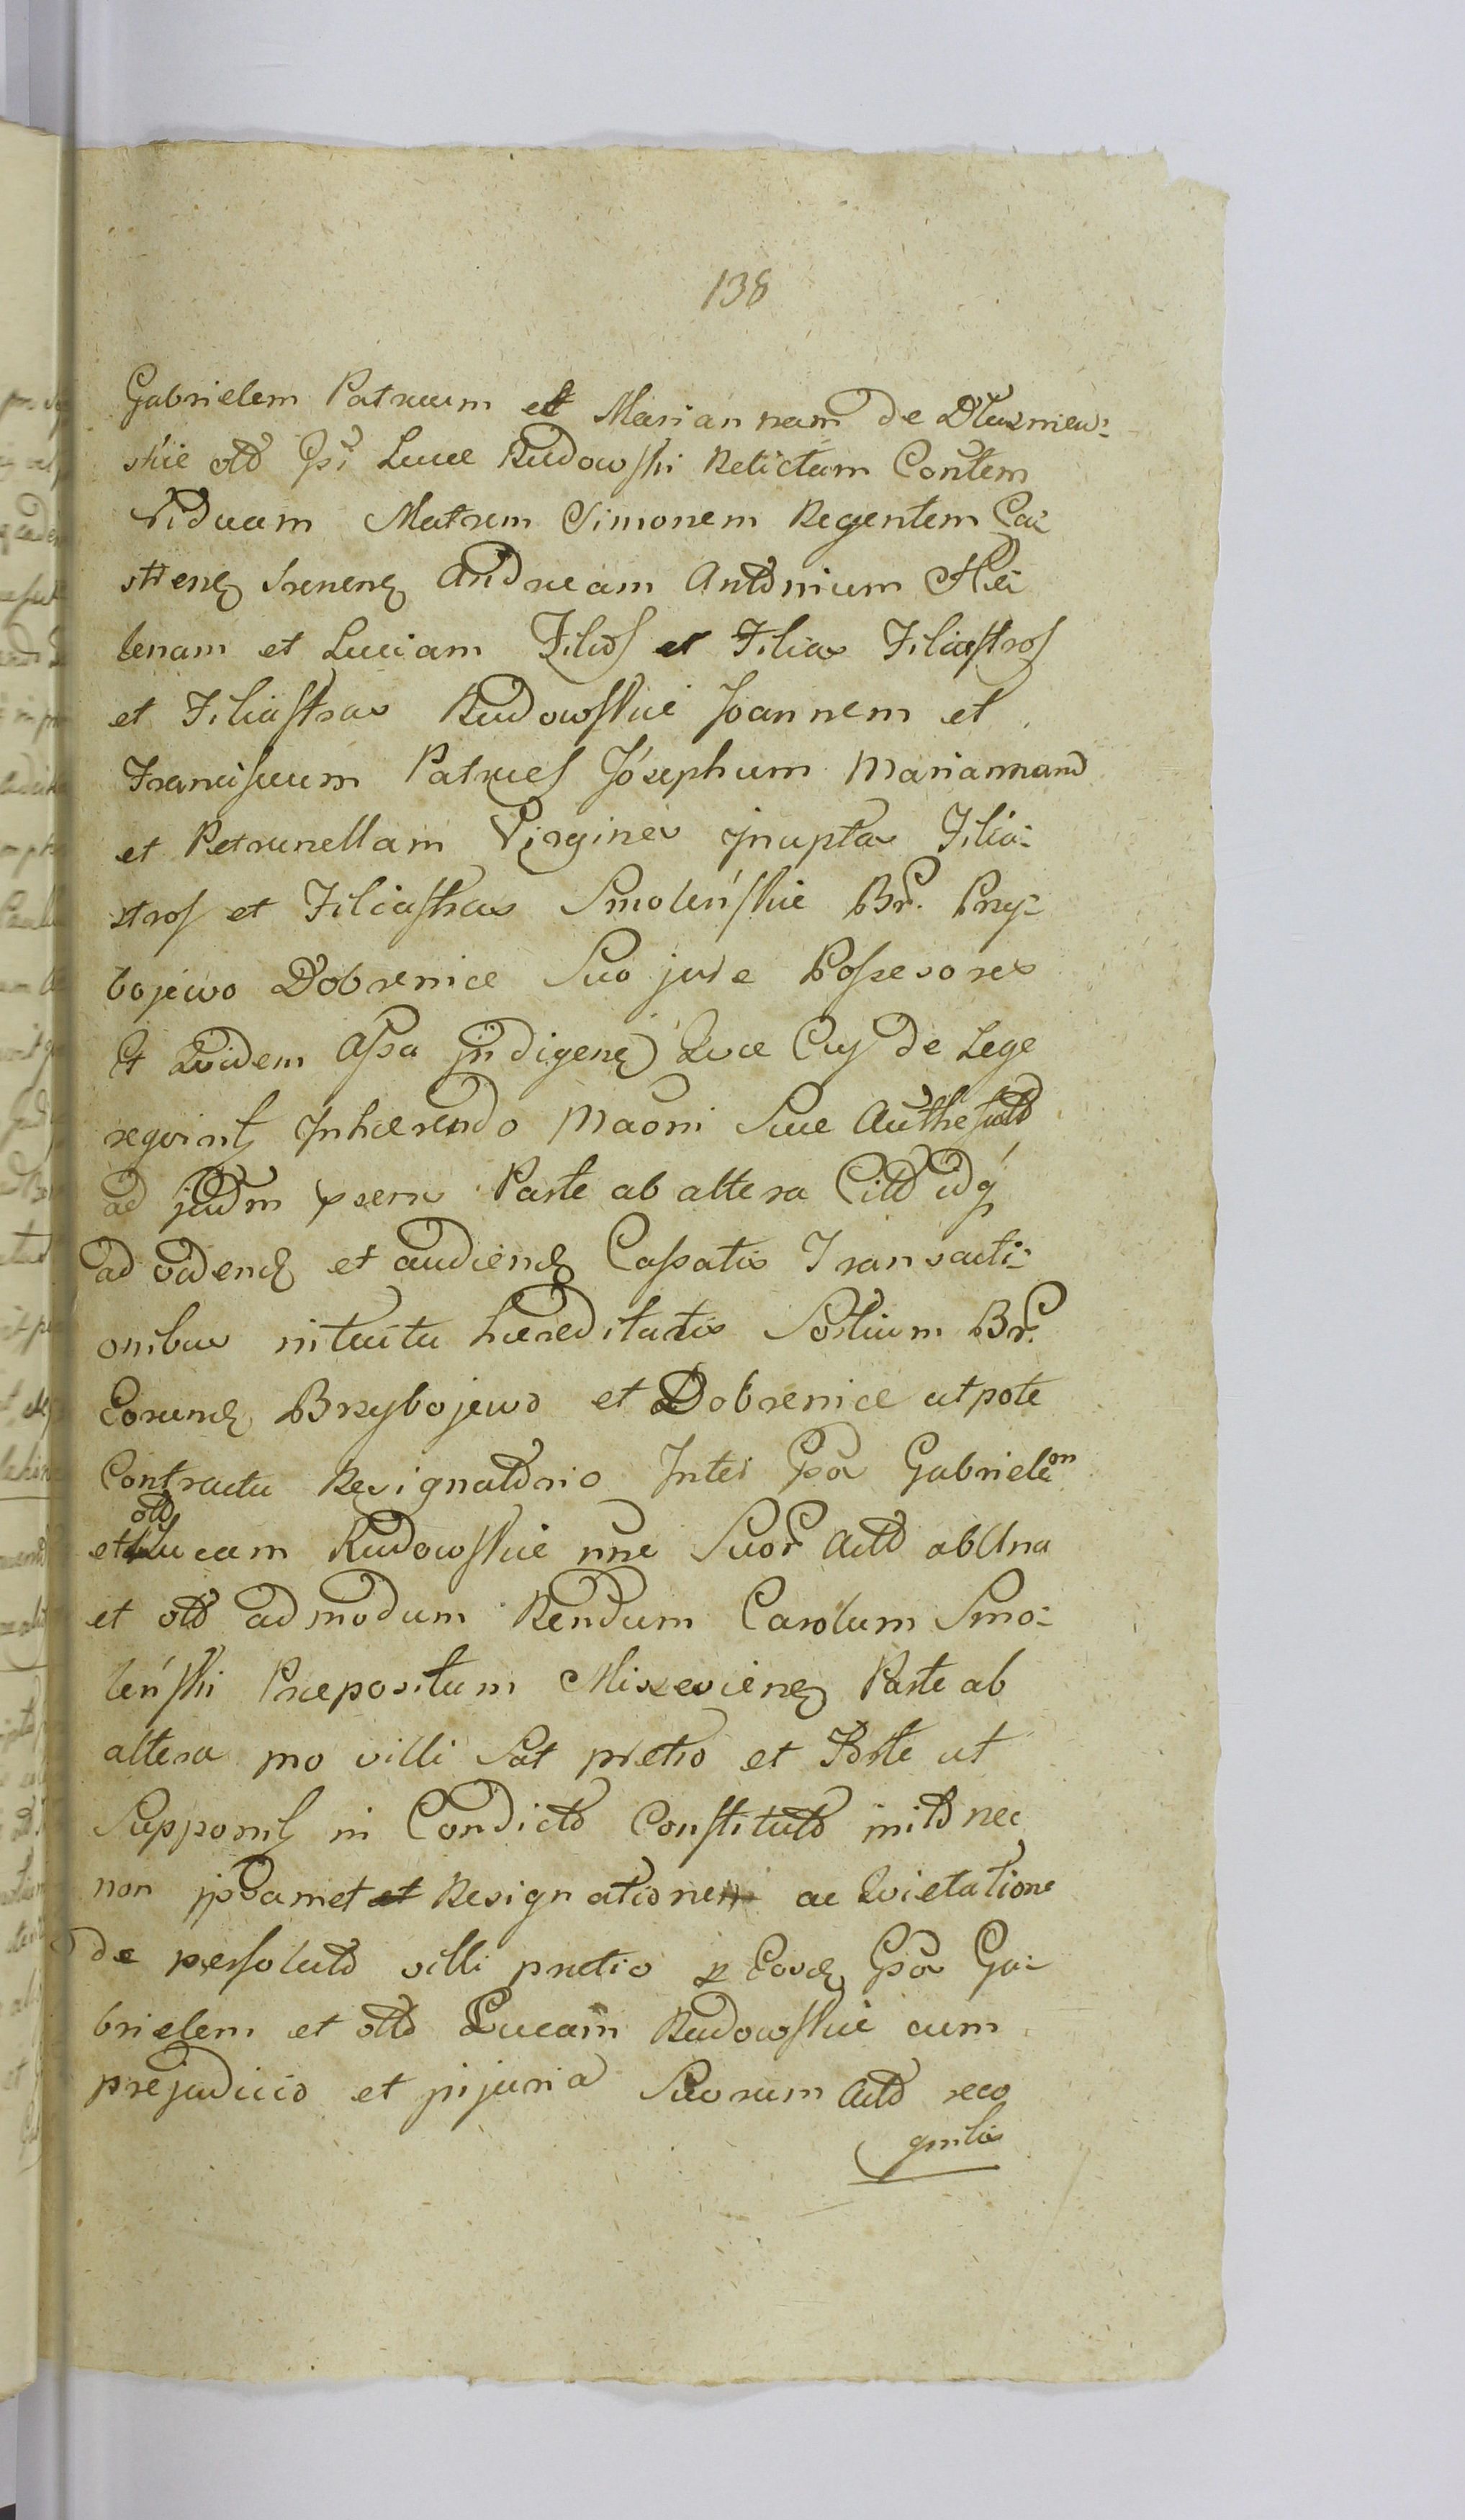 138
Gabrielem Patruum et Mariannam de Dłuzniew:
skie olto Gsi Lucæ Rudowski Relictam Contem
Viduam Matrem Simonem Regentem Ca:
strens Srenens Andream Antonium He:
lenam et Luciam Filios et Filias Filiastros
et Filiastras Rudowskie Joannem et
Franciscum Patrues Josephum Mariannam
et Petrunellam Virgines jnuptas Filia:
stros et Filiastras Smoleńskie Br. Przy:
bojewo Dobrenice Suo jure Possesores
Et Quidem Assa jndigens Quæ Cuj de Lege
requirit Inhærendo Maoni Suæ Authe
ad judm præns Parte ab altera Citto idq
ad vidend et audiend Cassatis Transacti:
onibus intuitu hæreditatis Sortium Br.
Eorund Brzybojewo et Dobrenice utpote
Contractu Resignatorio Inter Gsos Gabrielem
et olto Lucam Rudowskie nne Suor Acto ab Una
et olto admodum Rendum Carolum Smo:
leński Præpositum Miszeviens Parte ab
altera pro villi Sat pretio et Forte ut
Supponit in Condicto Constituto inito nec
non ipsamet et Resignatione ac Quietatione
de persoluto villi pretio p Eosd Gsos Ga:
brielem et olto Lucam Rudowskie cum
prejudicio et injuria Suorum Acto reco
gnitis